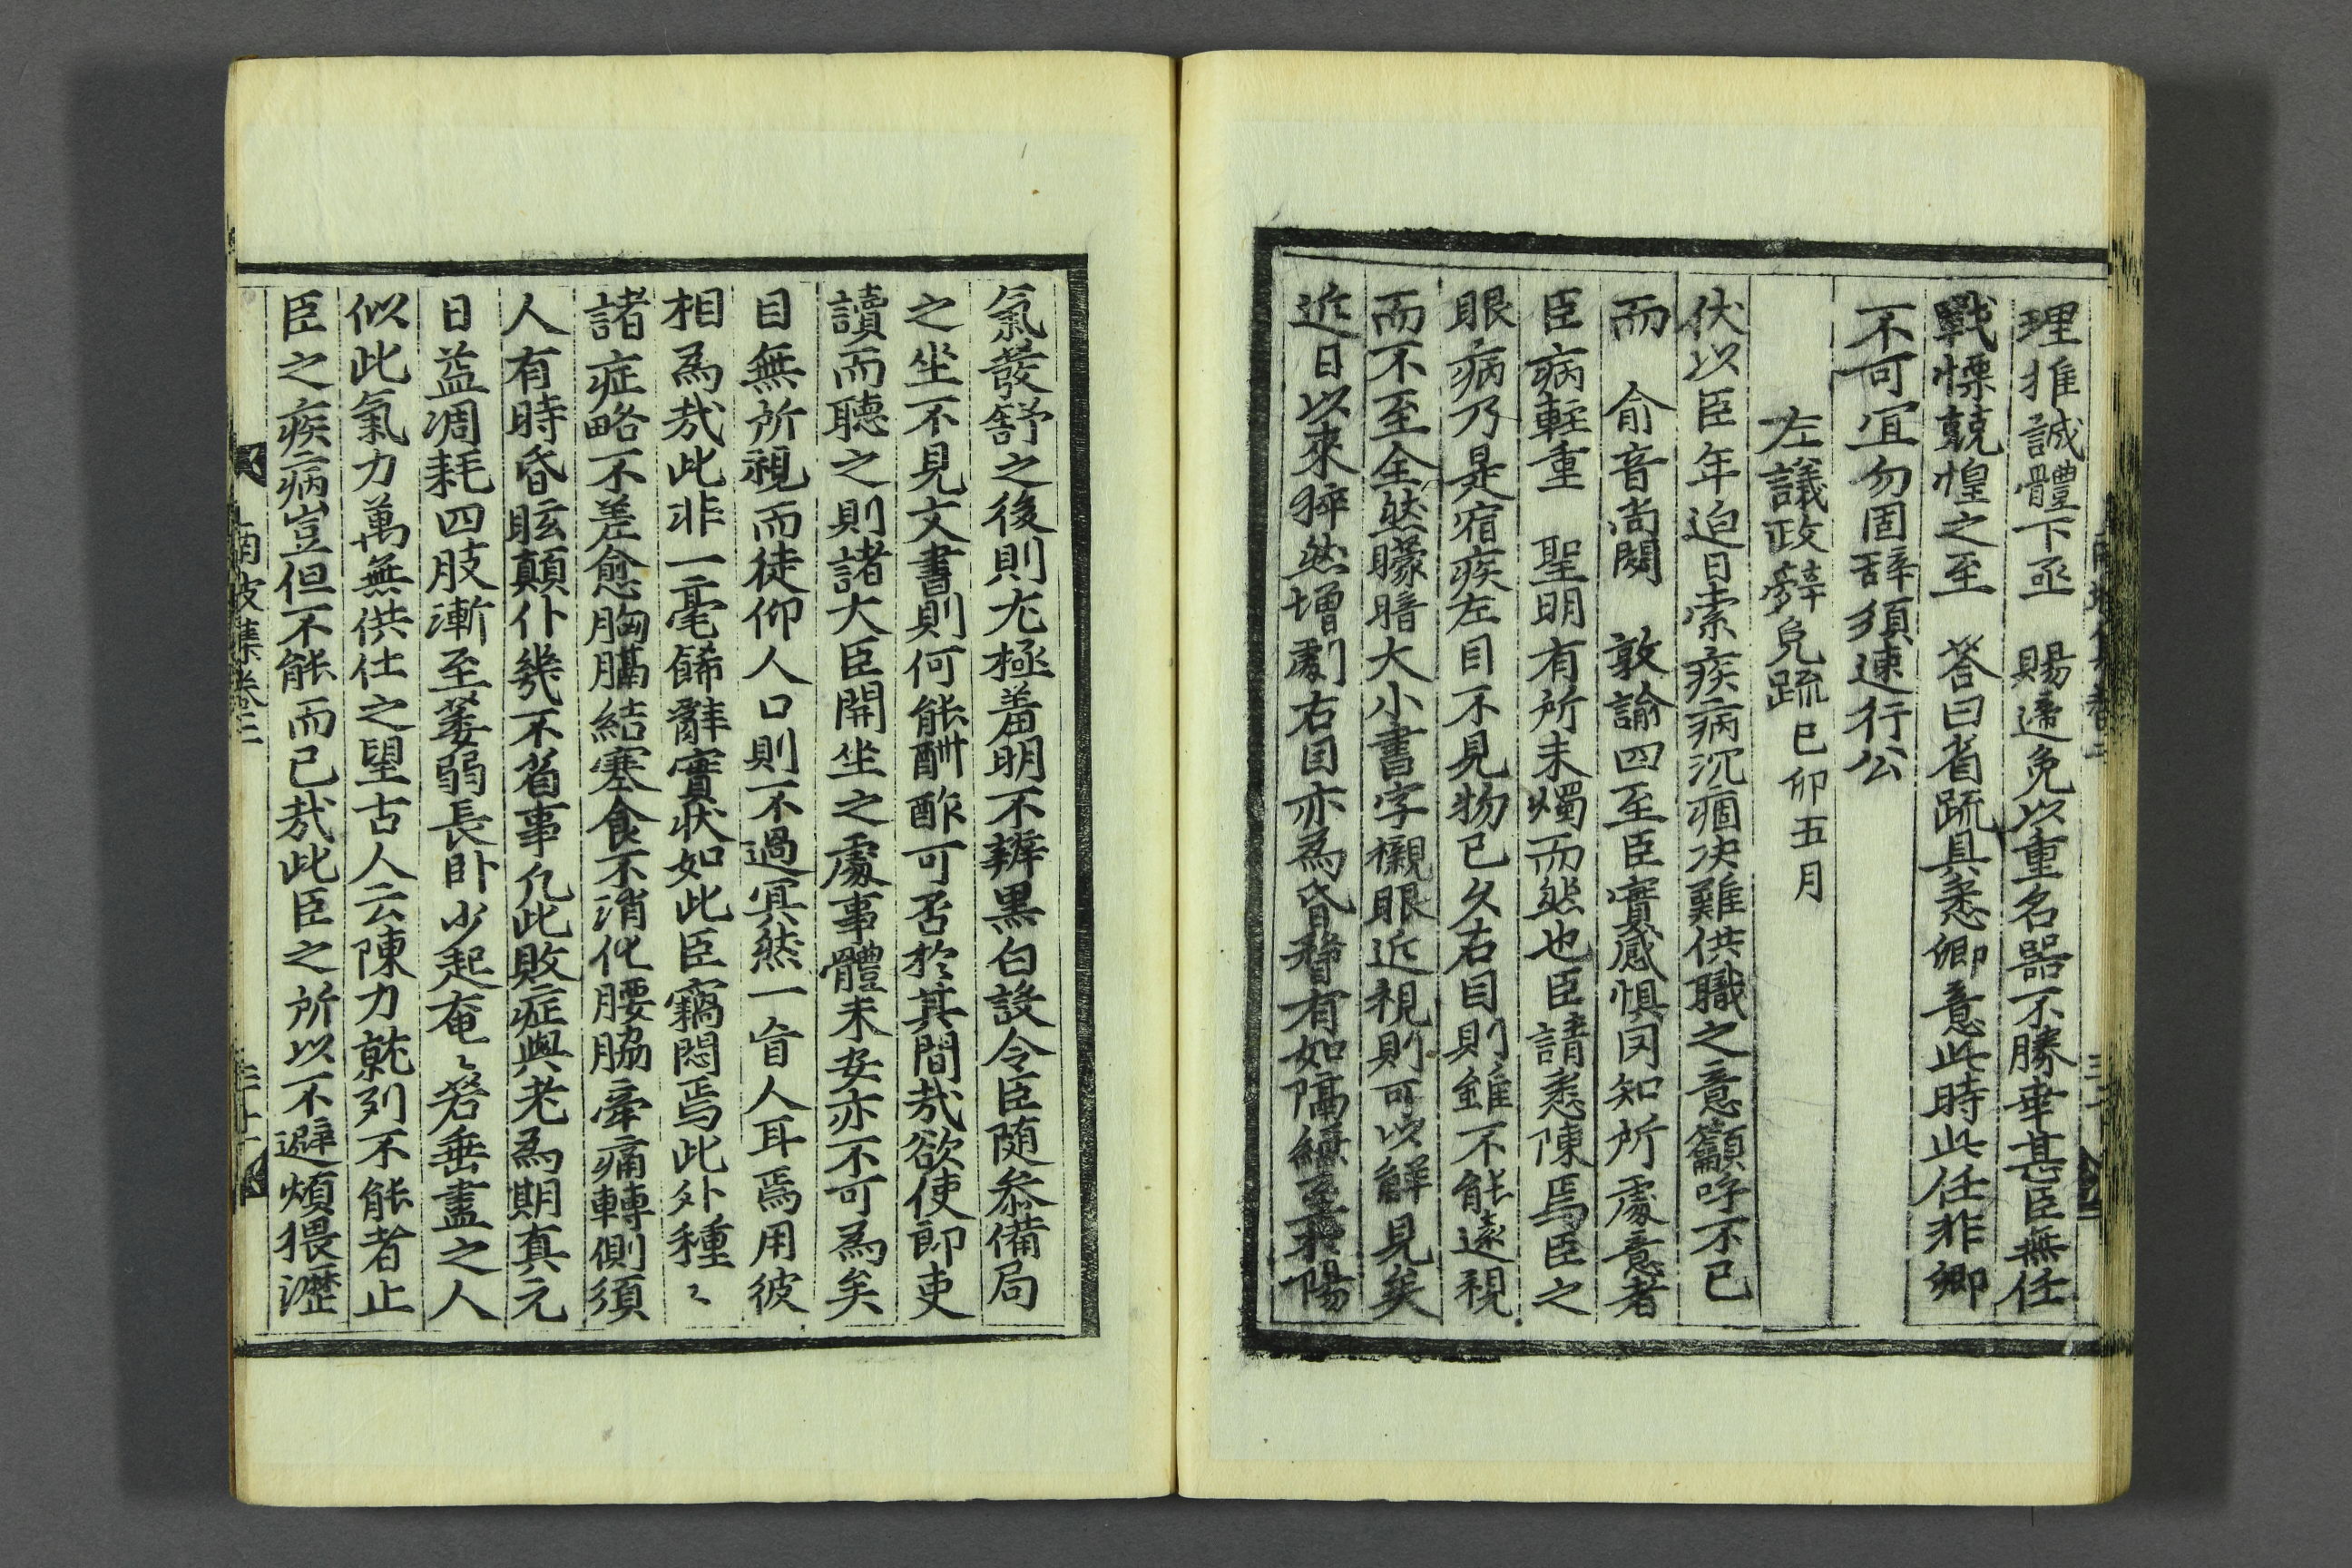 理推誠體下亟　賜遞免以重名器不勝幸甚臣無任
戰慄兢惶之至　答曰省疏具悉卿意此時此任非卿
不可宜勿固辭須速行公
左議政辭免疏己卯五月
伏以臣年迫日索疾病沉痼决難供職之意籲呼不已
而　俞音尚閟　敦諭四至臣實感惧罔知所處意者
臣病輕重　聖明有所未燭而然也臣請悉陳焉臣之
眼病乃是宿疾左目不見物已久右目則雖不能遠視
而不至全然矇暗大小書字襯眼近視則可以解見矣
近日以來猝然增劇右目亦為昏瞀有如隔紙至於陽
氣發舒之後則尤極羞明不辨黑白設令臣随叅備局
之坐不見文書則何能酬酢可否於其間哉欲使郎吏
讀而聽之則諸大臣開坐之處事體未安亦不可為矣
目無所視而徒仰人口則不過冥然一盲人耳焉用彼
相為哉此非一毫餙辭實狀如此臣竊悶焉此外種〻
諸症略不差愈胸膈結塞食不消化腰脇牽痛轉側須
人有時昏眩顛仆幾不省事凢此敗症與老為期真元
日益凋耗四肢漸至萎弱長卧少起奄〻若垂盡之人
似此氣力萬無供仕之望古人云陳力就列不能者止
臣之疾病豈但不能而已哉此臣之所以不避煩猥瀝
南坡集卷三
三十一